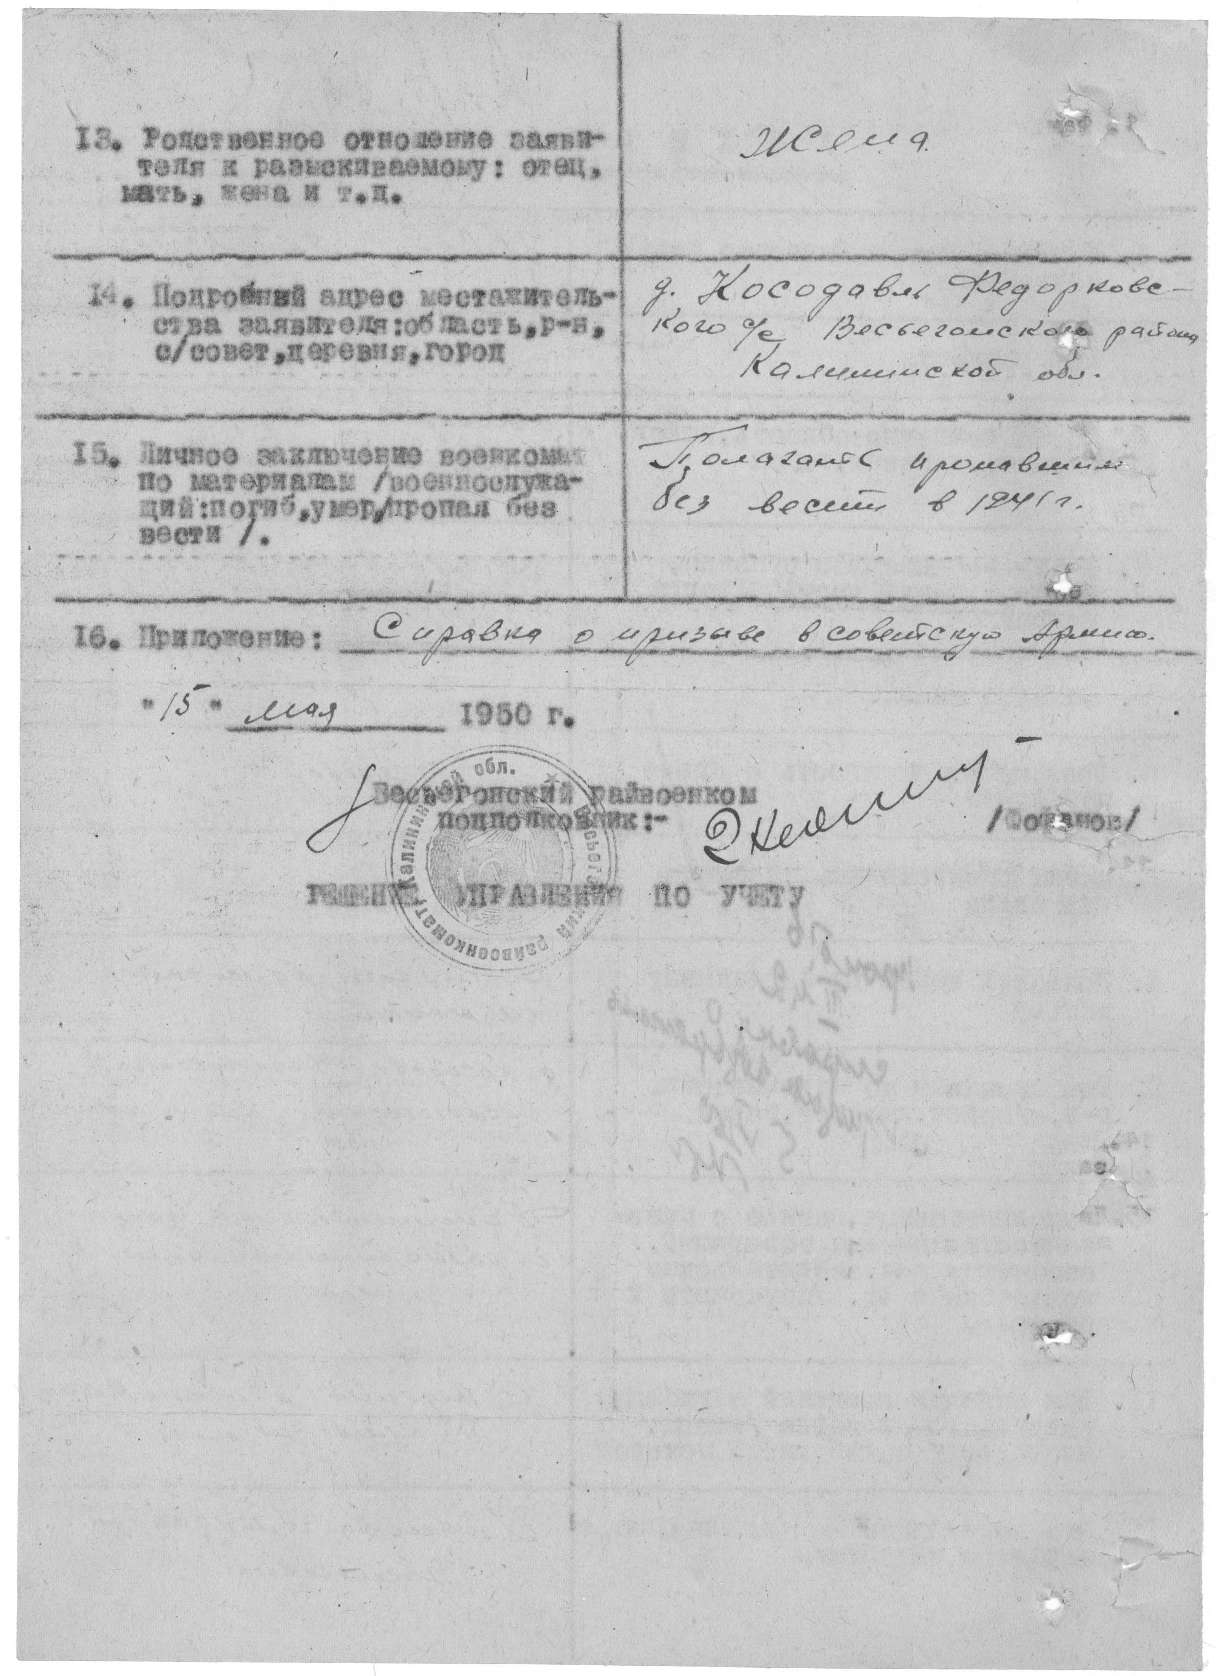 13. Родственное отношение заяви-
теля к разыскиваемому: отец,
мать, жена и т.д.
Жена.
14. Подробный адрес местажитель-
ства заявителя:область,р-н,
с/совет,деревня,город
д. Косодавль Федорковс-
кого с/с Весьегонского района
Калининской обл.
15. Личное заключение военкомат
по материалам /военнослужа-
щий:погиб,умер,/пропал без
вести /.
Полагать пропавшим
без вести в 1941 г.
16. Приложение: Справка о призыве в советскую Армию.
"15" мая 1950 г.
Весьегонский райвоенком
подполковник:-
/Фофанов/
Весьегонский райвоенкомат, Калининской обл.
РЕШЕНИЕ УПРАВЛЕНИЯ ПО УЧЕТУ